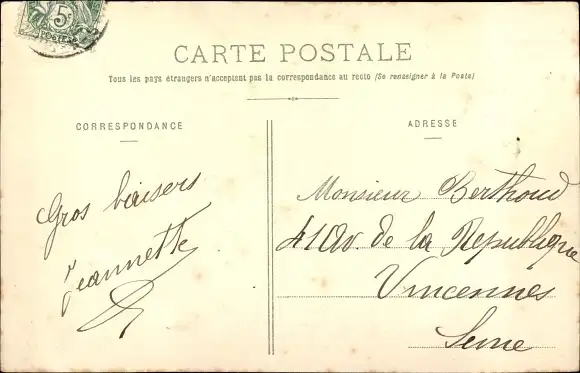 5
POSTES
CARTE POSTALE
Tous les pays étrangers n'acceptent pas la correspondance au recto (Se renseigner à la Poste)
CORRESPONDANCE
ADRESSE
Gros baisers
Jeannette
Monsieur Berthoud
41 Av. de la République
Vincennes
Seine